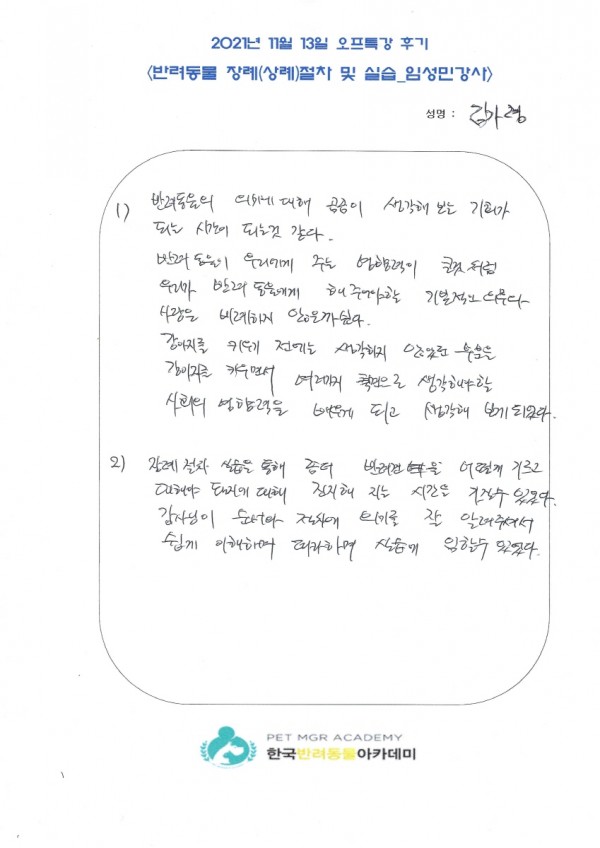 2021년 11월 13일 오프특강 후기
<반려동물 장례(상례)절차 및 실습_임성민강사>
성명 : 김가령
1) 반려동물의 대해 곰곰이 생각해 보는 기회가
되는 시간이 되는것 같다.
반려동물이 우리에게 주는 영향력이 큰것처럼
우리가 반려동물에게 해주어야할 기본적인 의무다
사랑은 비례하지 않을까싶다.
강아지를 키우기 전에는 생각하지 않았던 부분을
강아지를 키우면서 여러가지 측면으로 생각해야할
사회의 영향력을 배우게 되고 생각해 보게되었다.
2) 장례 절차 실습을 통해 좀더 반려견 을 어떻게 기르고
대해야 되는지 대해 진지해 지는 시간을 가질수 있었다.
강사님이 순서와 절차에 의미를 잘 알려주셔서
쉽게 이해하며 따라하며 실습에 임할수 있었다.
PET MGR ACADEMY
한국반려동물아카데미